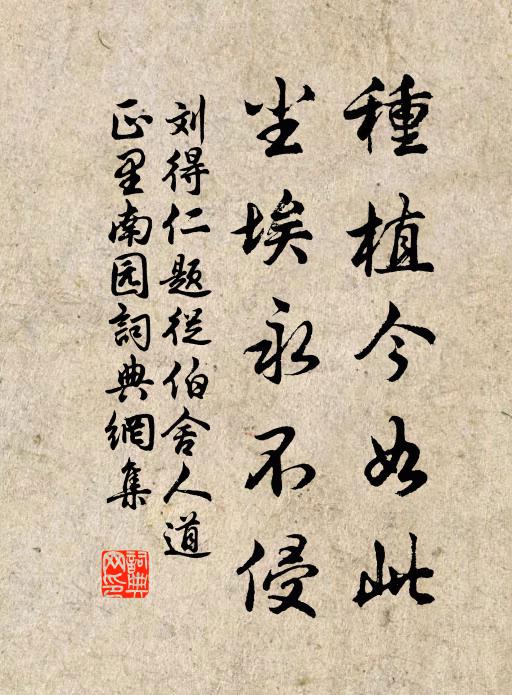 種植今如此
尘埃永不侵
刘得仁题從伯舍人道
正里南园詞典網集
詞典网印